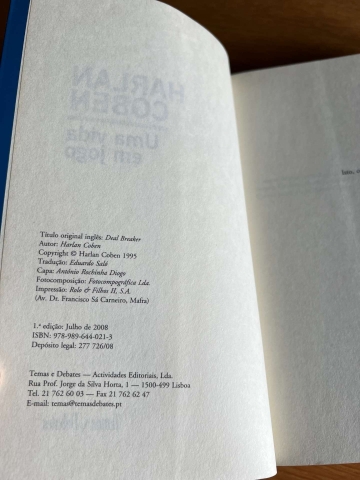 Título original inglês: Deal Breaker
Autor: Harlan Coben
Copyright © Harlan Coben 1995
Tradução: Eduardo Saló
Capa: António Rochinha Diogo
Fotocomposição: Fotocompográfica Lda.
Impressão: Rolo & Filhos II, S.A.
(Av. Dr. Francisco Sá Carneiro, Mafra)
1.ª edição: Julho de 2008
ISBN: 978-989-644-021-3
Depósito legal: 277 726/08
Temas e Debates — Actividades Editoriais, Lda.
Rua Prof. Jorge da Silva Horta, 1 — 1500-499 Lisboa
Tel. 21 762 60 03 — Fax 21 762 62 47
E-mail: temas@temasdebates.pt
HARLAN
COBEN
Uma vida
em jogo